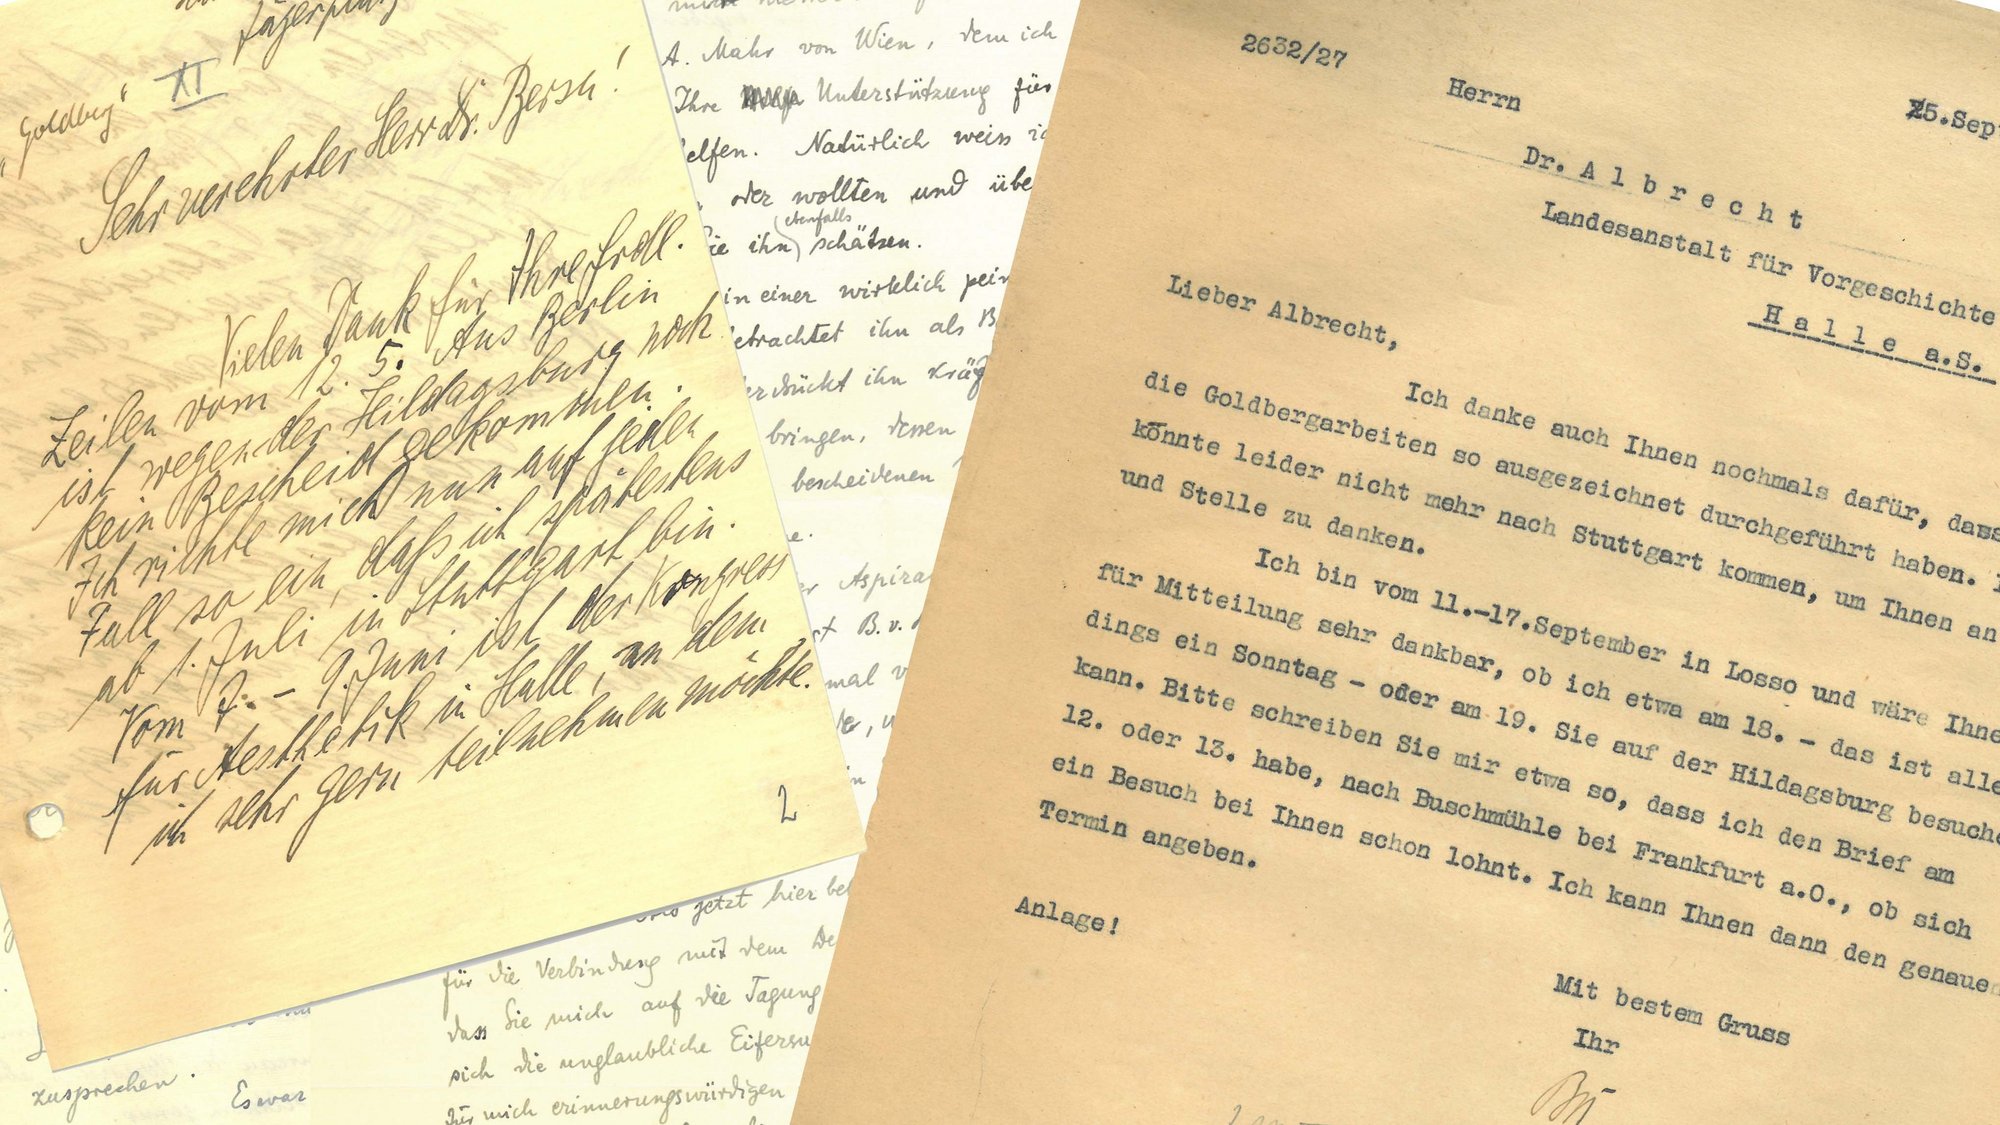 Jägerplatz
"Goldberg"
XI
Sehr verehrter Herr Dr. Bersu!
Vielen Dank für Ihre frdl.
Zeilen vom 12. 5. Aus Berlin
ist wegen der Hildagsburg noch
kein Bescheid gekommen.
Ich richte mich nun auf jeden
Fall so ein, daß ich spätestens
ab 1. Juli in Stuttgart bin.
Vom 7. - 9. Juni ist der Kongress
für Aesthetik in Halle, an dem
ich sehr gern teilnehmen möchte.
2
A. Mahr von Wien, dem ich
Ihre Unterstützung für
elfen. Natürlich weiss ic
oder wollten und übe
ebenfalls
ie ihn schätzen.
in einer wirklich pein
etrachtet ihn als B
erdrückt ihn kräf
bringen, dessen
bescheidenen
e.
r Aspira
st B. v.
mal v
in
jetzt hier be
für die Verbindung mit dem De
dass Sie mich auf die Tagung
sich die unglaubliche Eifersu
für mich erinnerungswürdigen
zusprechen.
Es war
2632/27
Herrn
25.Sept
Dr. A l b r e c h t
Landesanstalt für Vorgeschichte
H a l l e a.S.
Lieber Albrecht,
Ich danke auch Ihnen nochmals dafür, dass
die Goldbergarbeiten so ausgezeichnet durchgeführt haben. I
könnte leider nicht mehr nach Stuttgart kommen, um Ihnen an
und Stelle zu danken.
Ich bin vom 11.-17.September in Losso und wäre Ihne
für Mitteilung sehr dankbar, ob ich etwa am 18. - das ist alle
dings ein Sonntag - oder am 19. Sie auf der Hildagsburg besuche
kann. Bitte schreiben Sie mir etwa so, dass ich den Brief am
12. oder 13. habe, nach Buschmühle bei Frankfurt a.O., ob sich
ein Besuch bei Ihnen schon lohnt. Ich kann Ihnen dann den genauen
Termin angeben.
Anlage!
Mit bestem Gruss
Ihr